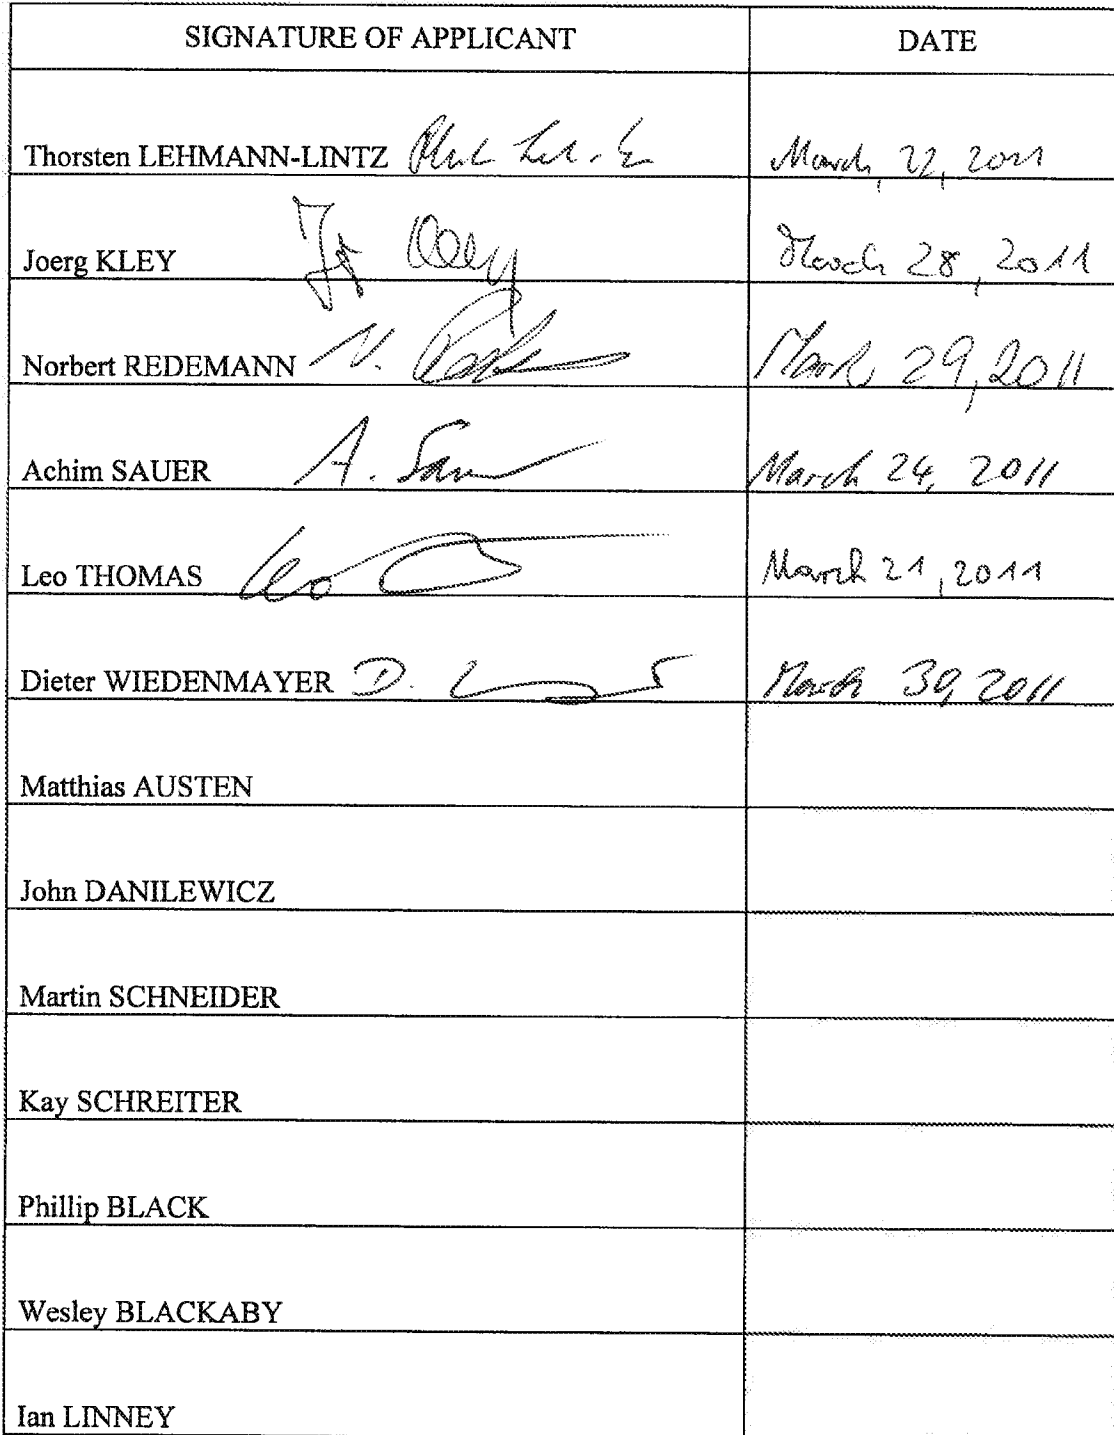 SIGNATURE OF APPLICANT DATE
Thorsten LEHMANN-LINTZ March, 22, 2011
Joerg KLEY March 28, 2011
Norbert REDEMANN N. March 29, 2011
Achim SAUER A. Sauer March 24, 2011
Leo THOMAS Leo March 21, 2011
Dieter WIEDENMAYER D. March 30, 2011
Matthias AUSTEN
John DANILEWICZ
Martin SCHNEIDER
Kay SCHREITER
Phillip BLACK
Wesley BLACKABY
Ian LINNEY